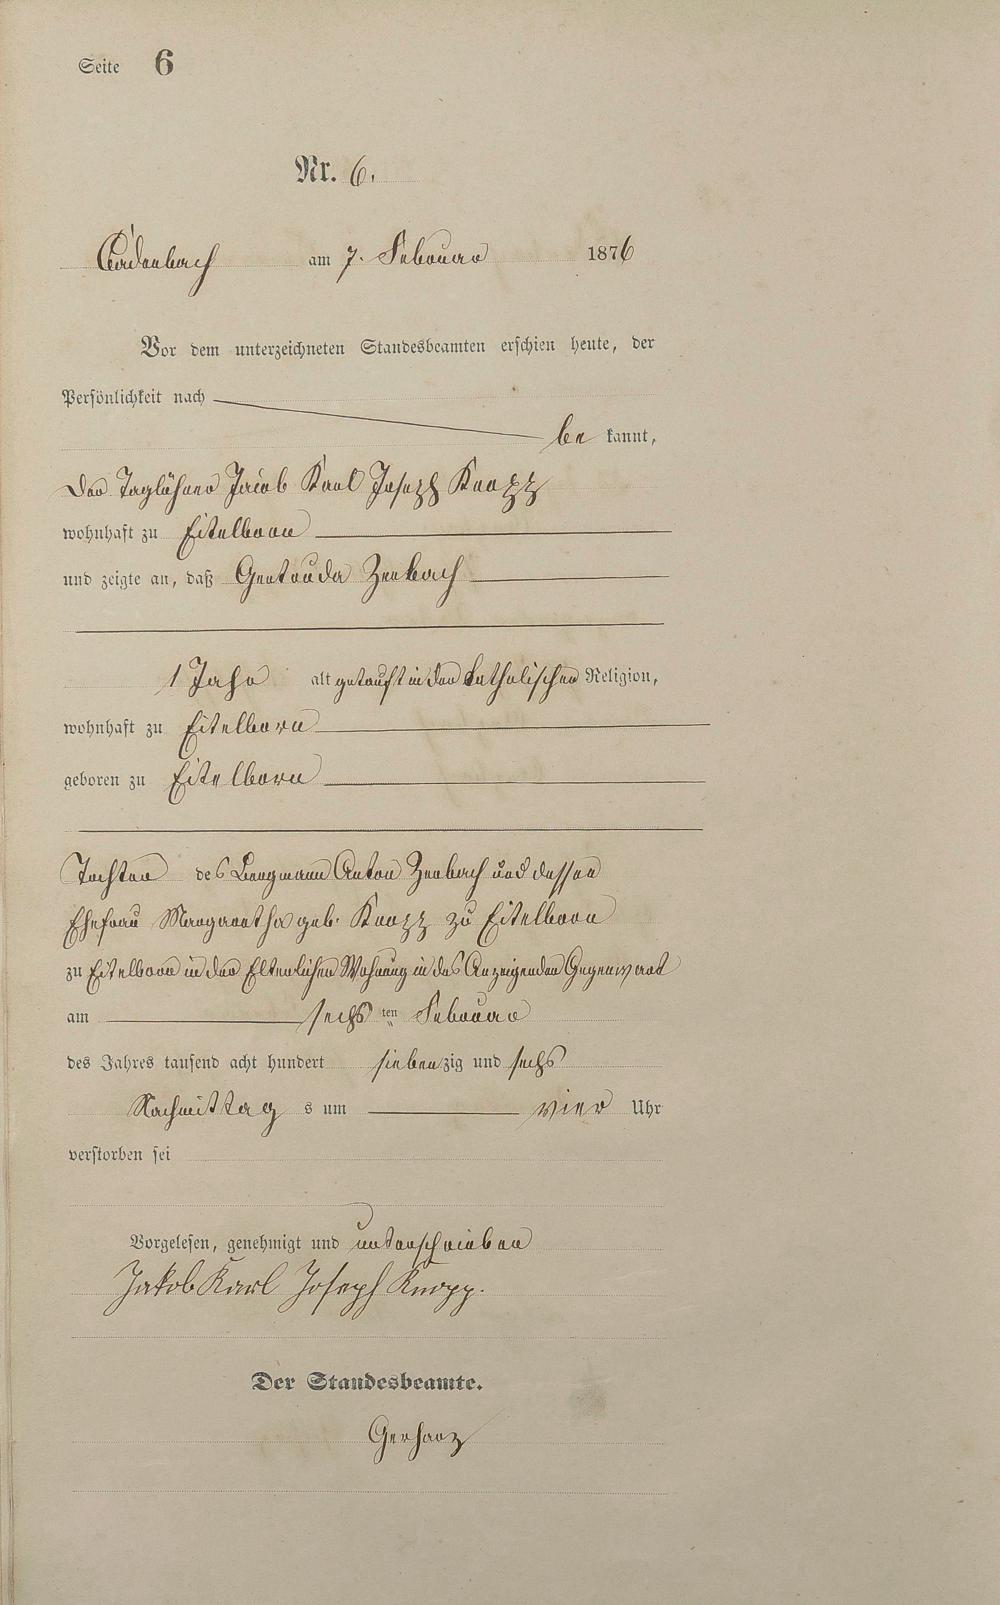 Seite 6
Nr. 6.
Cadenbach am 7. Februar 1876
Vor dem unterzeichneten Standesbeamten erschien heute, der
Persönlichkeit nach
be kannt,
Der Taglöhner Jacob Karl Joseph Knopp
wohnhaft zu Eitelborn
und zeigte an, daß Gertruda Zerbach
1 Jahr alt getauft in der katholischen Religion,
wohnhaft zu Eitelborn
geboren zu Eitelborn
Tochter des Bergmann Anton Zerbach und dessen
Ehefrau Margaretha geb. Knopp zu Eitelborn
zu Eitelborn in der Elterlichen Wohnung in des Anzeigenden Gegenwart
am sechs ten Februar
des Jahres tausend acht hundert sieben zig und sechs
Nachmittag s um vier Uhr
verstorben sei
Vorgelesen, genehmigt und unterschrieben
Jakob Karl Joseph Knopp.
Der Standesbeamte.
Gerharz